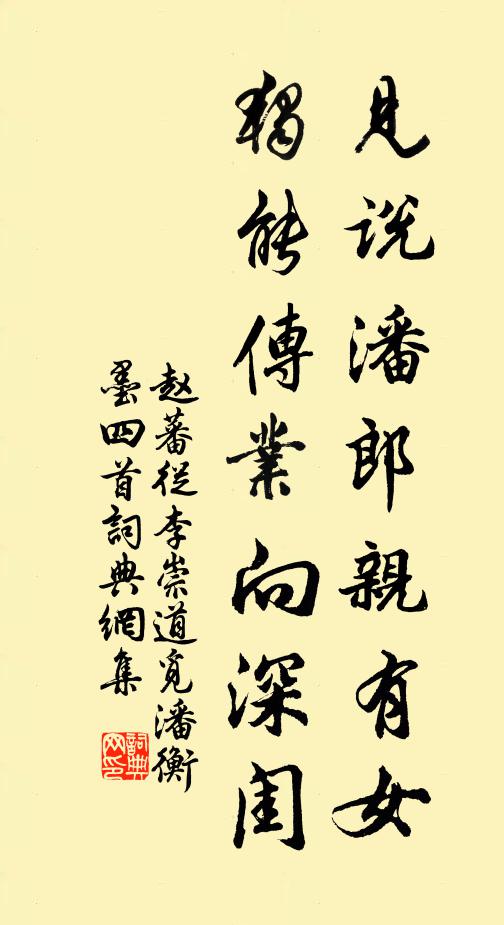 見説潘郎親有女
獨能傳業向深閨
赵蕃從李崇道覓潘衡
墨四首詞典網集
詞典
网印